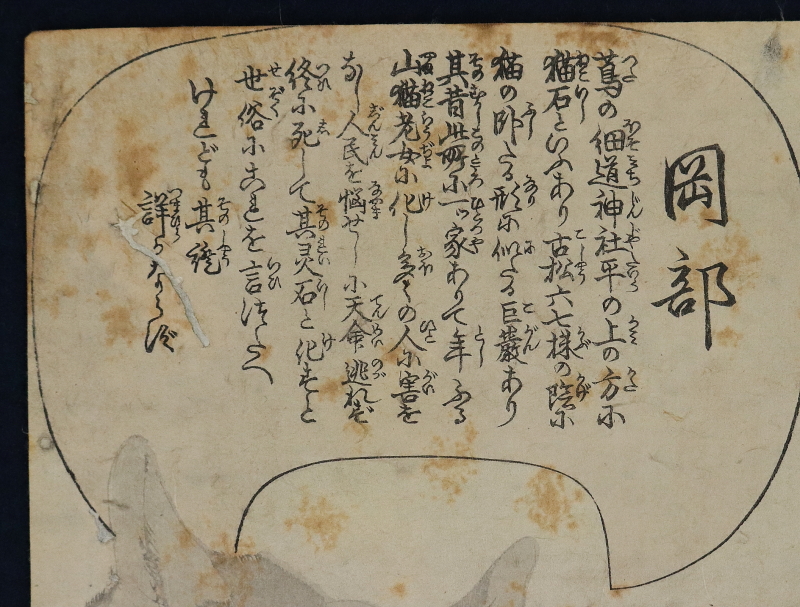 岡部
蔦の細道神社平の上の方に
猫石といふあり古松六七株の陰に
猫の臥たる形に似たる巨巌あり
其昔此所に一ツ家ありて年ふる
山猫老女に化し多くの人に害を
なし人民を悩せしに天命逃れず
終に死して其灵石と化すと
世俗にこれを言つたへ
けれども其説
詳ならず